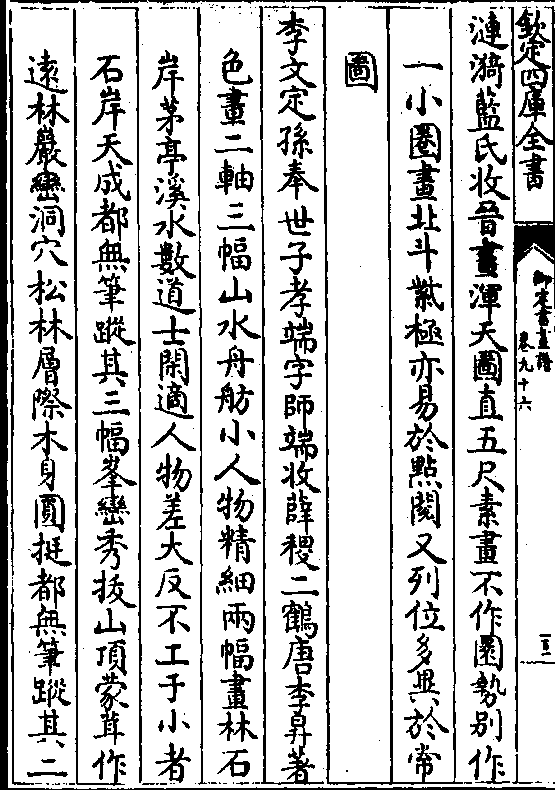 欽定四庫全書
御定書畫譜
卷九十六
漣漪藍氏收晉畫渾天圖直五尺素畫不作圜勢别作
一小圈畫北斗紫極亦易於點閱又列位多異於常
圖
李文定孫奉世子孝端字師端收薛稷二鶴唐李昇著
色畫二軸三幅山水舟舫小人物精細兩幅畫林石
岸茅亭溪水數道士閑適人物差大反不工于小者
石岸天成都無筆蹤其三幅峯巒秀拔山頂蒙茸作
遠林巖巒洞穴松林層際木身圓挺都無筆蹤其二